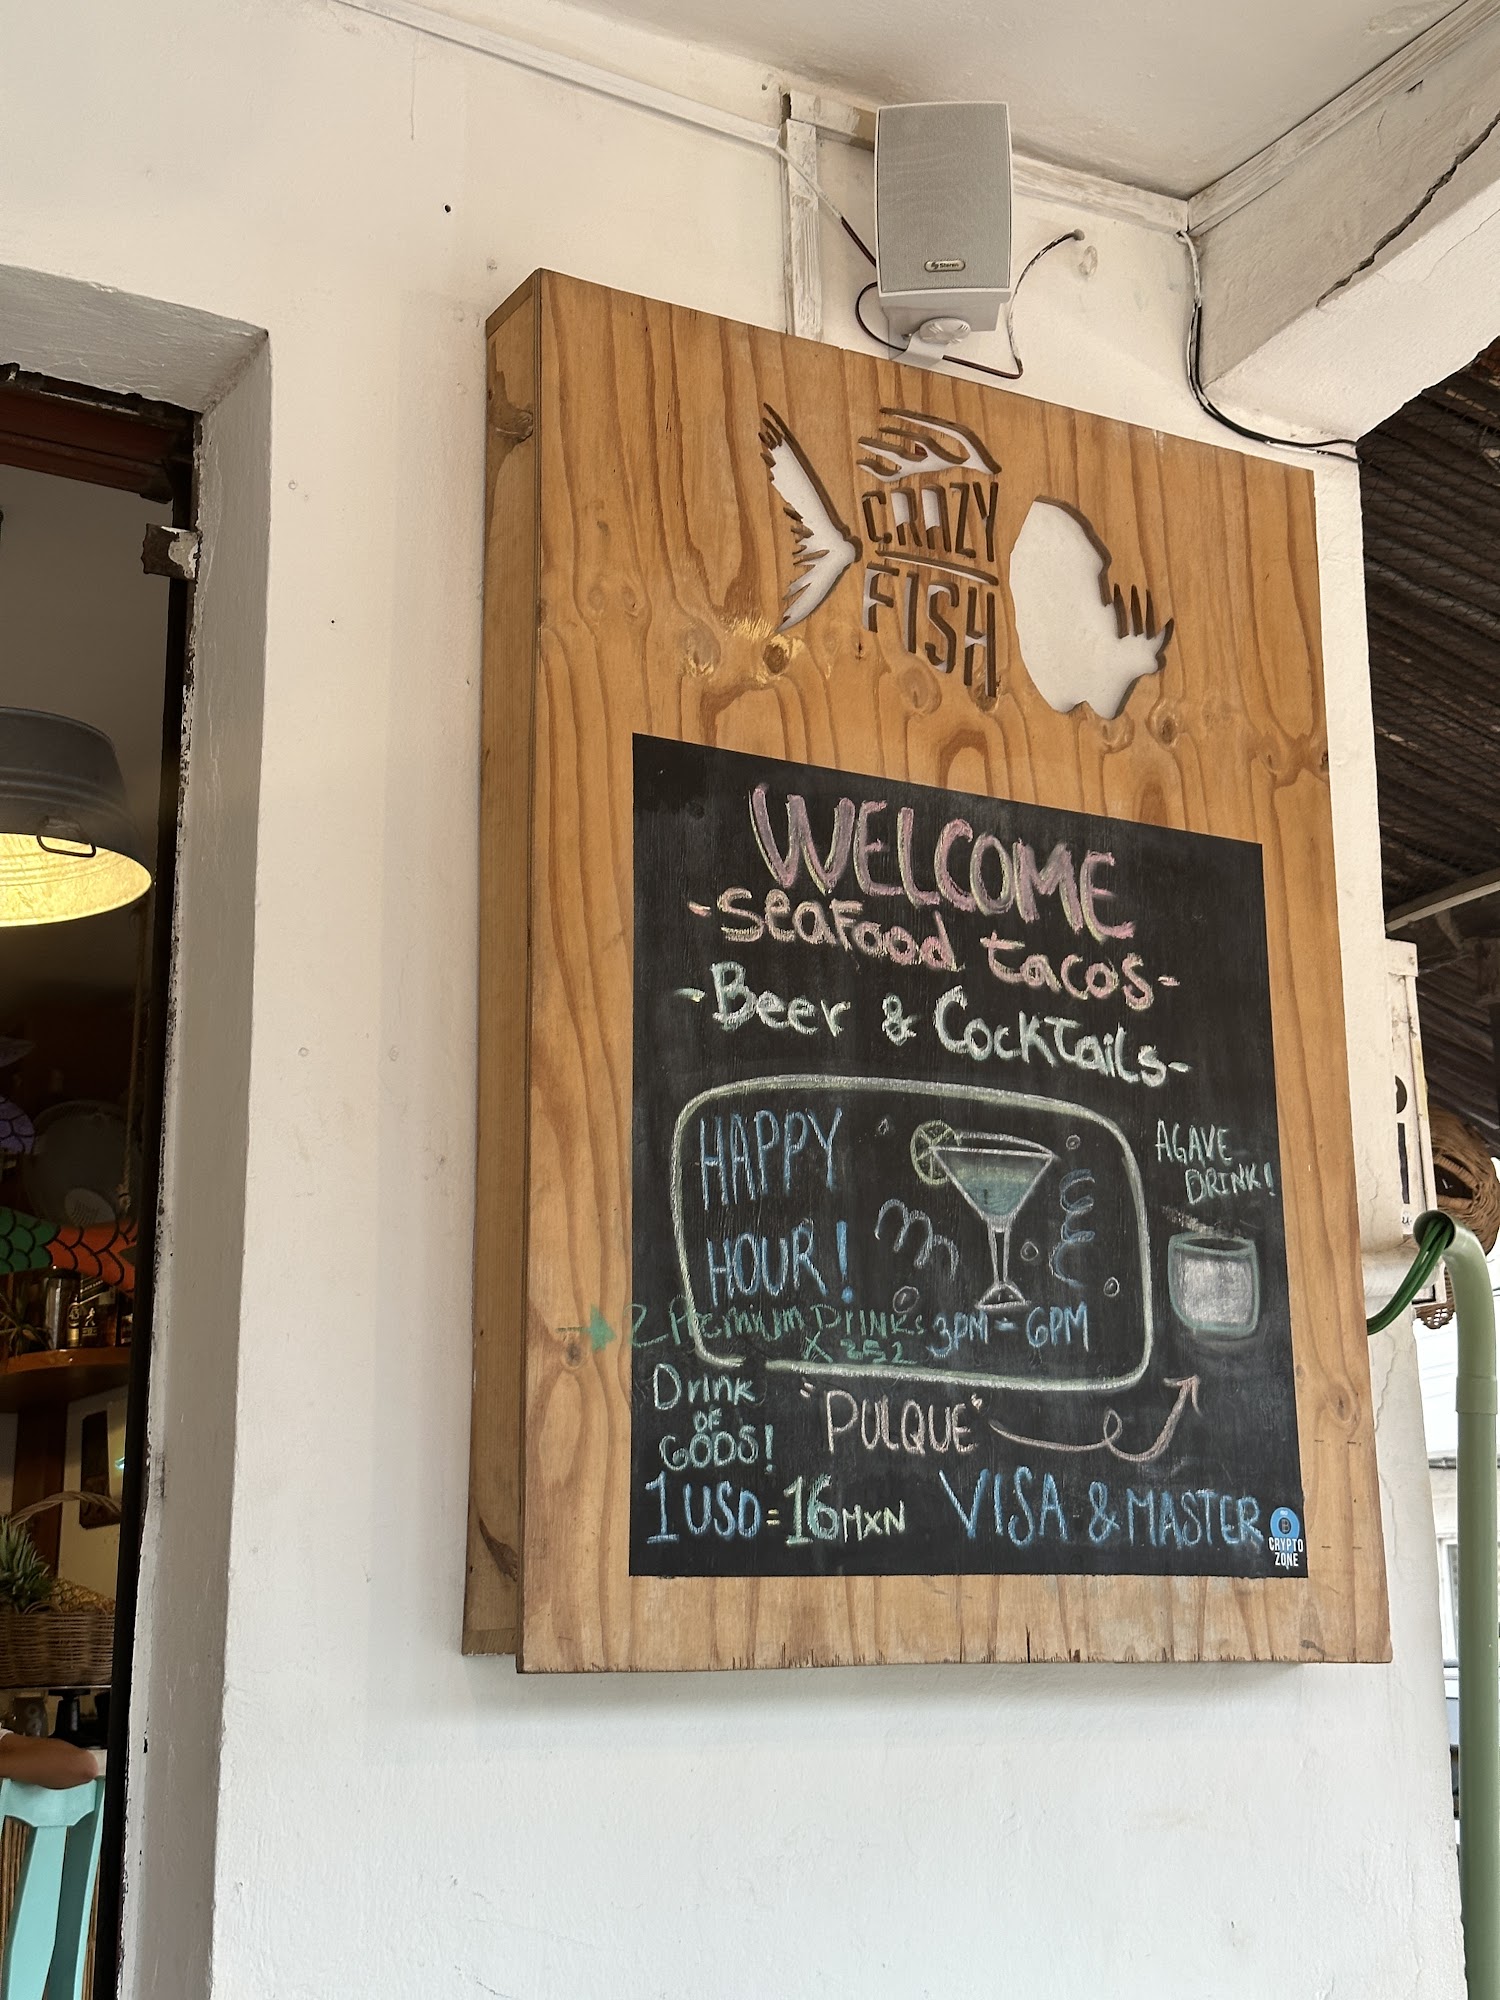 Steren
CRAZY
FISH
WELCOME
-Seafood tacos-
-Beer & Cocktails-
HAPPY
HOUR!
2 Premium Drinks
X 252
3PM - 6PM
AGAVE
DRINK!
Drink
OF
GODS!
"PULQUE"
1USD=16MXN
VISA & MASTER
CRYPTO
ZONE